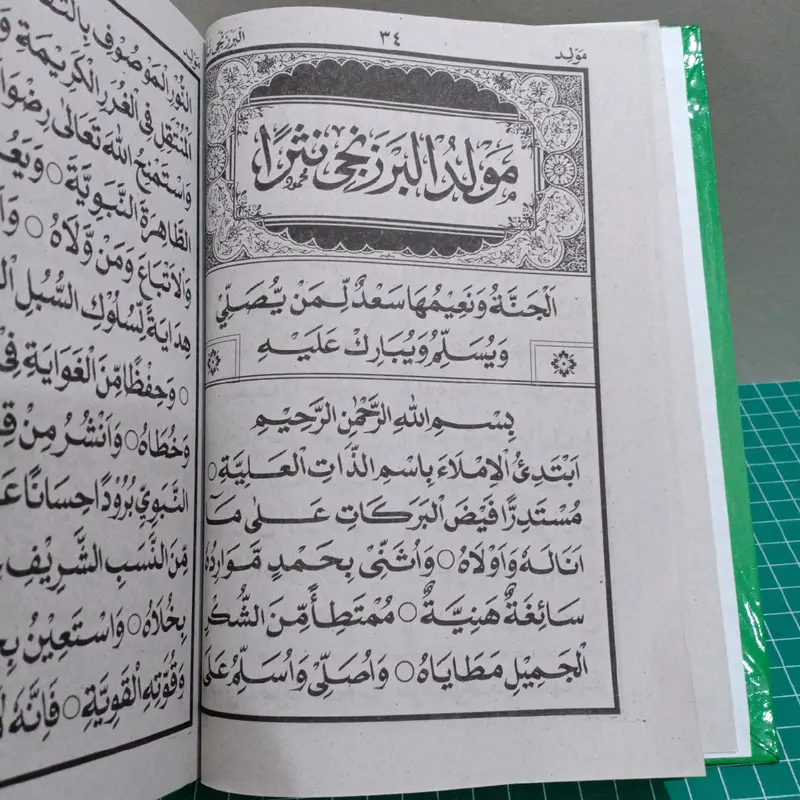 مَوْلِد
٣٤
البرزنجى
مَوْلِدُ الْبَرْزَنْجِى نَثْرًا
اَلْجَنَّةُ وَنَعِيْمُهَا سَعْدٌ لِّمَنْ يُّصَلِّيْ
وَيُسَلِّمُ وَيُبَارِكْ عَلَيْهِ
بِسْمِ اللهِ الرَّحْمٰنِ الرَّحِيْمِ
اَبْتَدِئُ الْاِمْلَاءَ بِاسْمِ الذَّاتِ الْعَلِيَّةِ ○
مُسْتَدِرًّا فَيْضَ الْبَرَكَاتِ عَلٰى مَا
اَنَالَهُ وَاَوْلَاهُ ○ وَاُثَنِّىْ بِحَمْدٍ مَّوَارِدُهُ
سَائِغَةٌ هَنِيَّةٌ ○ مُمْتَطِأً مِّنَ الشُّكْرِ
الْجَمِيْلِ مَطَايَاهُ ○ وَاُصَلِّىْ وَاُسَلِّمُ عَلَى
مَوْلِد
النُّوْرِ الْمَوْصُوْفِ
الْمُنْتَقِلِ فِى الْغُرَرِ الْكَرِيْمَةِ
وَاسْتَمْنِحُ اللهَ تَعَالٰى
الطَّاهِرَةَ النَّبَوِيَّةَ ○
وَالْاَتْبَاعَ وَمَنْ وَّلَاهُ ○
هِدَايَةً لِّسُلُوْكِ السُّبُلِ
○ وَحِفْظًا مِّنَ الْغَوَايَةِ فِيْ
وَخُطَاهُ ○ وَاَنْشُرُ مِنْ
النَّبَوِيِّ بُرُوْدًا حِسَانًا
مِنَ النَّسَبِ الشَّرِيْفِ
بِخُلَاهُ ○ وَاسْتَعِيْنُ
وَقُوَّتِهِ الْقَوِيَّةِ ○ فَاِنَّهُ